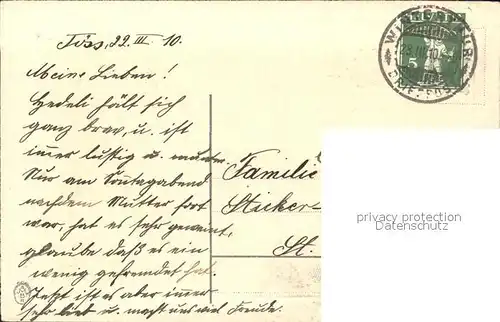 Töss, 29. III. 10.
WINTERTHUR
28. III. 10
5
BRIEFPOST
Meine Lieben!
Hedeli hält sich
ganz brav, u. ist
immer lustig u. munter.
Nur am Sonntagabend
nachdem Mutter fort
war, hat es sehr geweint,
glaube daß es ein
wenig gefremdet hat.
Jetzt ist es aber immer
sehr lieb u. macht uns viel Freude.
Familie
Sticker
St.
privacy protection